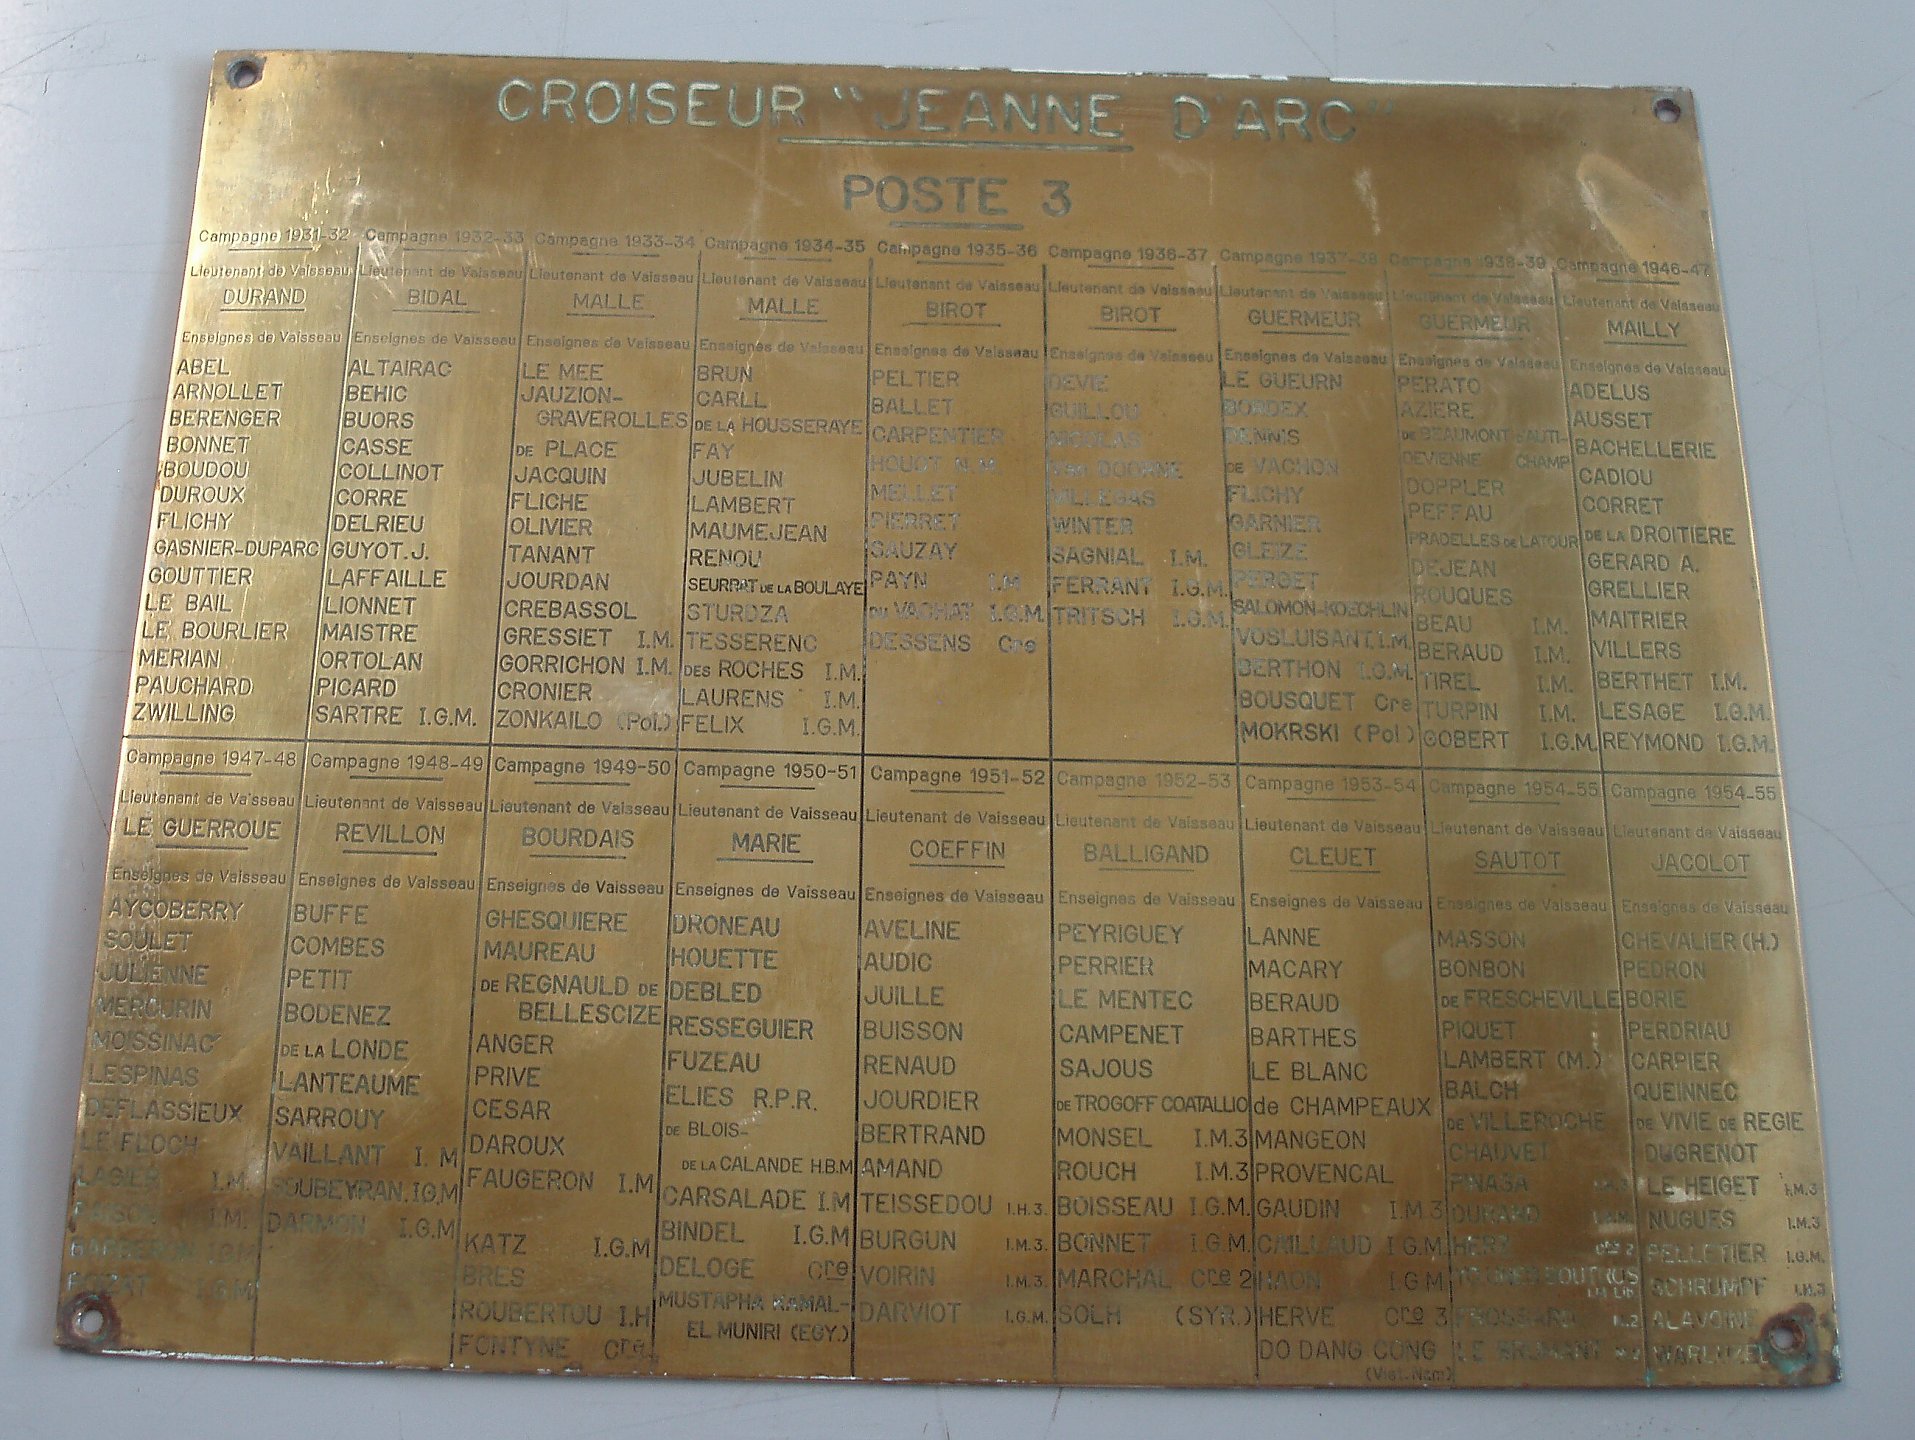 CROISEUR "JEANNE D'ARC"
POSTE 3
Campagne 1931-32
Lieutenant de Vaisseau
DURAND
Enseignes de Vaisseau
ABEL
ARNOLLET
BERENGER
BONNET
BOUDOU
DUROUX
FLICHY
GASNIER-DUPARC
GOUTTIER
LE BAIL
LE BOURLIER
MERIAN
PAUCHARD
ZWILLING
Campagne 1932-33
Lieutenant de Vaisseau
BIDAL
Enseignes de Vaisseau
ALTAIRAC
BEHIC
BUORS
CASSE
COLLINOT
CORRE
DELRIEU
GUYOT.J.
LAFFAILLE
LIONNET
MAISTRE
ORTOLAN
PICARD
SARTRE I.G.M.
Campagne 1933-34
Lieutenant de Vaisseau
MALLE
Enseignes de Vaisseau
LE MEE
JAUZION-
GRAVEROLLES
DE PLACE
JACQUIN
FLICHE
OLIVIER
TANANT
JOURDAN
CREBASSOL
GRESSIET I.M.
GORRICHON I.M.
CRONIER
ZONKAILO (Pol.)
Campagne 1934-35
Lieutenant de Vaisseau
MALLE
Enseignes de Vaisseau
BRUN
CARLL
DE LA HOUSSERAYE
FAY
JUBELIN
LAMBERT
MAUMEJEAN
RENOU
SEURRAT DE LA BOULAYE
STURDZA
TESSERENC
DES ROCHES I.M.
LAURENS I.M.
FELIX I.G.M.
Campagne 1935-36
Lieutenant de Vaisseau
BIROT
Enseignes de Vaisseau
PELTIER
BALLET
CARPENTIER
HOUOT N.M.
MELLET
PIERRET
SAUZAY
PAYN I.M
DU VACHAT I.G.M.
DESSENS Cre
Campagne 1936-37
Lieutenant de Vaisseau
BIROT
Enseignes de Vaisseau
DEVIE
GUILLOU
NICOLAS
Van DOORNE
VILLEGAS
WINTER
SAGNIAL I.M.
FERRANT I.G.M.
TRITSCH I.G.M.
Campagne 1937-38
Lieutenant de Vaisseau
GUERMEUR
Enseignes de Vaisseau
LE GUEURN
BORDEX
DENNIS
DE VACHON
FLICHY
GARNIER
GLEIZE
PERGET
SALOMON-KOECHLIN
VOSLUISANT.I.M.
BERTHON I.G.M.
BOUSQUET Cre
MOKRSKI (Pol)
Campagne 1938-39
Lieutenant de Vaisseau
GUERMEUR
Enseignes de Vaisseau
PERATO
AZIERE
DE BEAUMONT D'AUTI-
DEVIENNE CHAMP
DOPPLER
PEFFAU
PRADELLES DE LATOUR
DEJEAN
ROUQUES
BEAU I.M.
BERAUD I.M.
TIREL I.M.
TURPIN I.M.
GOBERT I.G.M.
Campagne 1946-47
Lieutenant de Vaisseau
MAILLY
Enseignes de Vaisseau
ADELUS
AUSSET
BACHELLERIE
CADIOU
CORRET
DE LA DROITIERE
GERARD A.
GRELLIER
MAITRIER
VILLERS
BERTHET I.M.
LESAGE I.G.M.
REYMOND I.G.M.
Campagne 1947-48
Lieutenant de Vaisseau
LE GUERROUE
Enseignes de Vaisseau
AYCOBERRY
SOULET
JULIENNE
MERCURIN
MOISSINAC
LESPINAS
DEFLASSIEUX
LE FLOCH
LAGIER I.M.
I.M.
I.G.M
I.G.M
Campagne 1948-49
Lieutenant de Vaisseau
REVILLON
Enseignes de Vaisseau
BUFFE
COMBES
PETIT
BODENEZ
DE LA LONDE
LANTEAUME
SARROUY
VAILLANT I. M
SOUBEYRAN.I.G.M
DARMON I.G.M
Campagne 1949-50
Lieutenant de Vaisseau
BOURDAIS
Enseignes de Vaisseau
GHESQUIERE
MAUREAU
DE REGNAULD DE
BELLESCIZE
ANGER
PRIVE
CESAR
DAROUX
FAUGERON I.M
KATZ I.G.M
BRES
ROUBERTOU I.H
FONTYNE Cre
Campagne 1950-51
Lieutenant de Vaisseau
MARIE
Enseignes de Vaisseau
DRONEAU
HOUETTE
DEBLED
RESSEGUIER
FUZEAU
ELIES R.P.R.
DE BLOIS-
DE LA CALANDE H.B.M
CARSALADE I.M
BINDEL I.G.M
DELOGE Cre
MUSTAPHA KAMAL-
EL MUNIRI (EGY.)
Campagne 1951-52
Lieutenant de Vaisseau
COEFFIN
Enseignes de Vaisseau
AVELINE
AUDIC
JUILLE
BUISSON
RENAUD
JOURDIER
BERTRAND
AMAND
TEISSEDOU I.H.3.
BURGUN I.M.3.
VOIRIN I.M.3.
DARVIOT I.G.M.
Campagne 1952-53
Lieutenant de Vaisseau
BALLIGAND
Enseignes de Vaisseau
PEYRIGUEY
PERRIER
LE MENTEC
CAMPENET
SAJOUS
DE TROGOFF COATALLIO
MONSEL I.M.3
ROUCH I.M.3
BOISSEAU I.G.M.
BONNET I.G.M.
MARCHAL Cre 2
SOLH (SYR.)
Campagne 1953-54
Lieutenant de Vaisseau
CLEUET
Enseignes de Vaisseau
LANNE
MACARY
BERAUD
BARTHES
LE BLANC
de CHAMPEAUX
MANGEON
PROVENCAL
GAUDIN I.M.3
CAILLAUD I.G.M
HAON I.G.M
HERVE Cre 3
DO DANG CONG
(Viet.Nam)
Campagne 1954-55
Lieutenant de Vaisseau
SAUTOT
Enseignes de Vaisseau
MASSON
BONBON
DE FRESCHEVILLE
PIQUET
LAMBERT (M.)
BALCH
DE VILLEROCHE
CHAUVET
DURAND
Cre 2
Campagne 1954-55
Lieutenant de Vaisseau
JACOLOT
Enseignes de Vaisseau
CHEVALIER (H.)
PEDRON
BORIE
PERDRIAU
CARPIER
QUEINNEC
DE VIVIE DE REGIE
DUGRENOT
LE HEIGET I.M.3
NUGUES I.M.3
PELLETIER I.G.M.
SCHRUMPF I.M.3
ALAVOINE